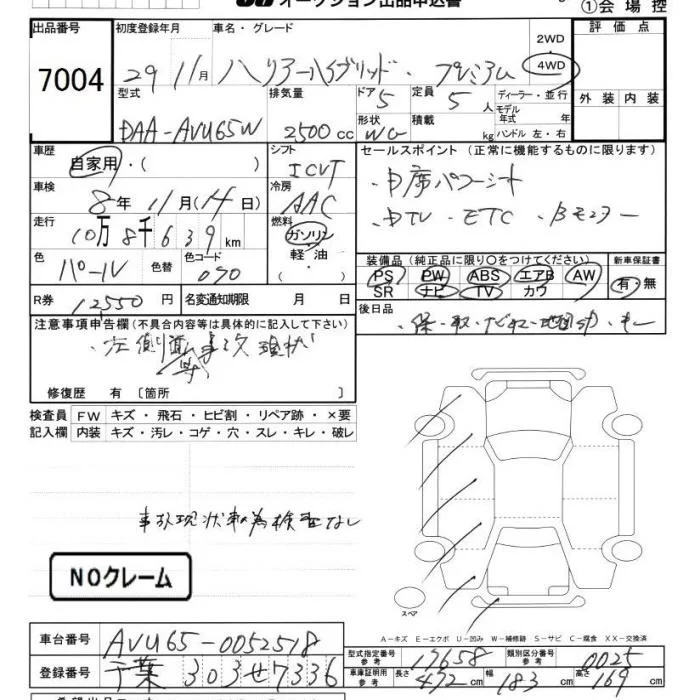 オークション出品申込書
①会場控
出品番号 初度登録年月 車名・グレード 評価点
7004 29 11月 ハリアーハイブリッド・プレミアム 2WD 4WD
型式 排気量 ドア 5 定員 5人 ディーラー・並行 外装 内装
DAA-AVU65W 2500cc 形状 WG 積載 kg モデル年式 年 ハンドル 左・右
車歴 シフト セールスポイント (正常に機能するものに限ります)
自家用・( ) ICVT
車検 8年 11月(14日) 冷房 AAC ・中席パワーシート
走行 10万8千639km 燃料 ガソリン 軽油 ・ ・DTV ・ETC ・Bモニター
色 パール 色替 色コード 070 装備品 (純正品に限り○をつけてください) 新車保証書
PS PW ABS エアB AW 有・無
SR ナビ TV カワ
R券 12550円 名変通知期限 月 日 後日品
注意事項申告欄(不具合内容等は具体的に記入して下さい) ・保・取・ナビ取・
・左側面事故現状
修復歴 有 〔箇所 〕
検査員 FW キズ・飛石・ヒビ割・リペア跡・×要
記入欄 内装 キズ・汚レ・コゲ・穴・スレ・キレ・破レ
事故現状車為検査なし
NOクレーム
スペア
A－キズ E－エクボ U－凹み W－補修跡 S－サビ C－腐食 XX－交換済
車台番号 AVU65-0052518 型式指定番号 参考 17658 類別区分番号 参考 0025
登録番号 千葉 303 せ 7336 車庫証明用 参考 長さ 472cm 幅 183cm 高さ 169cm